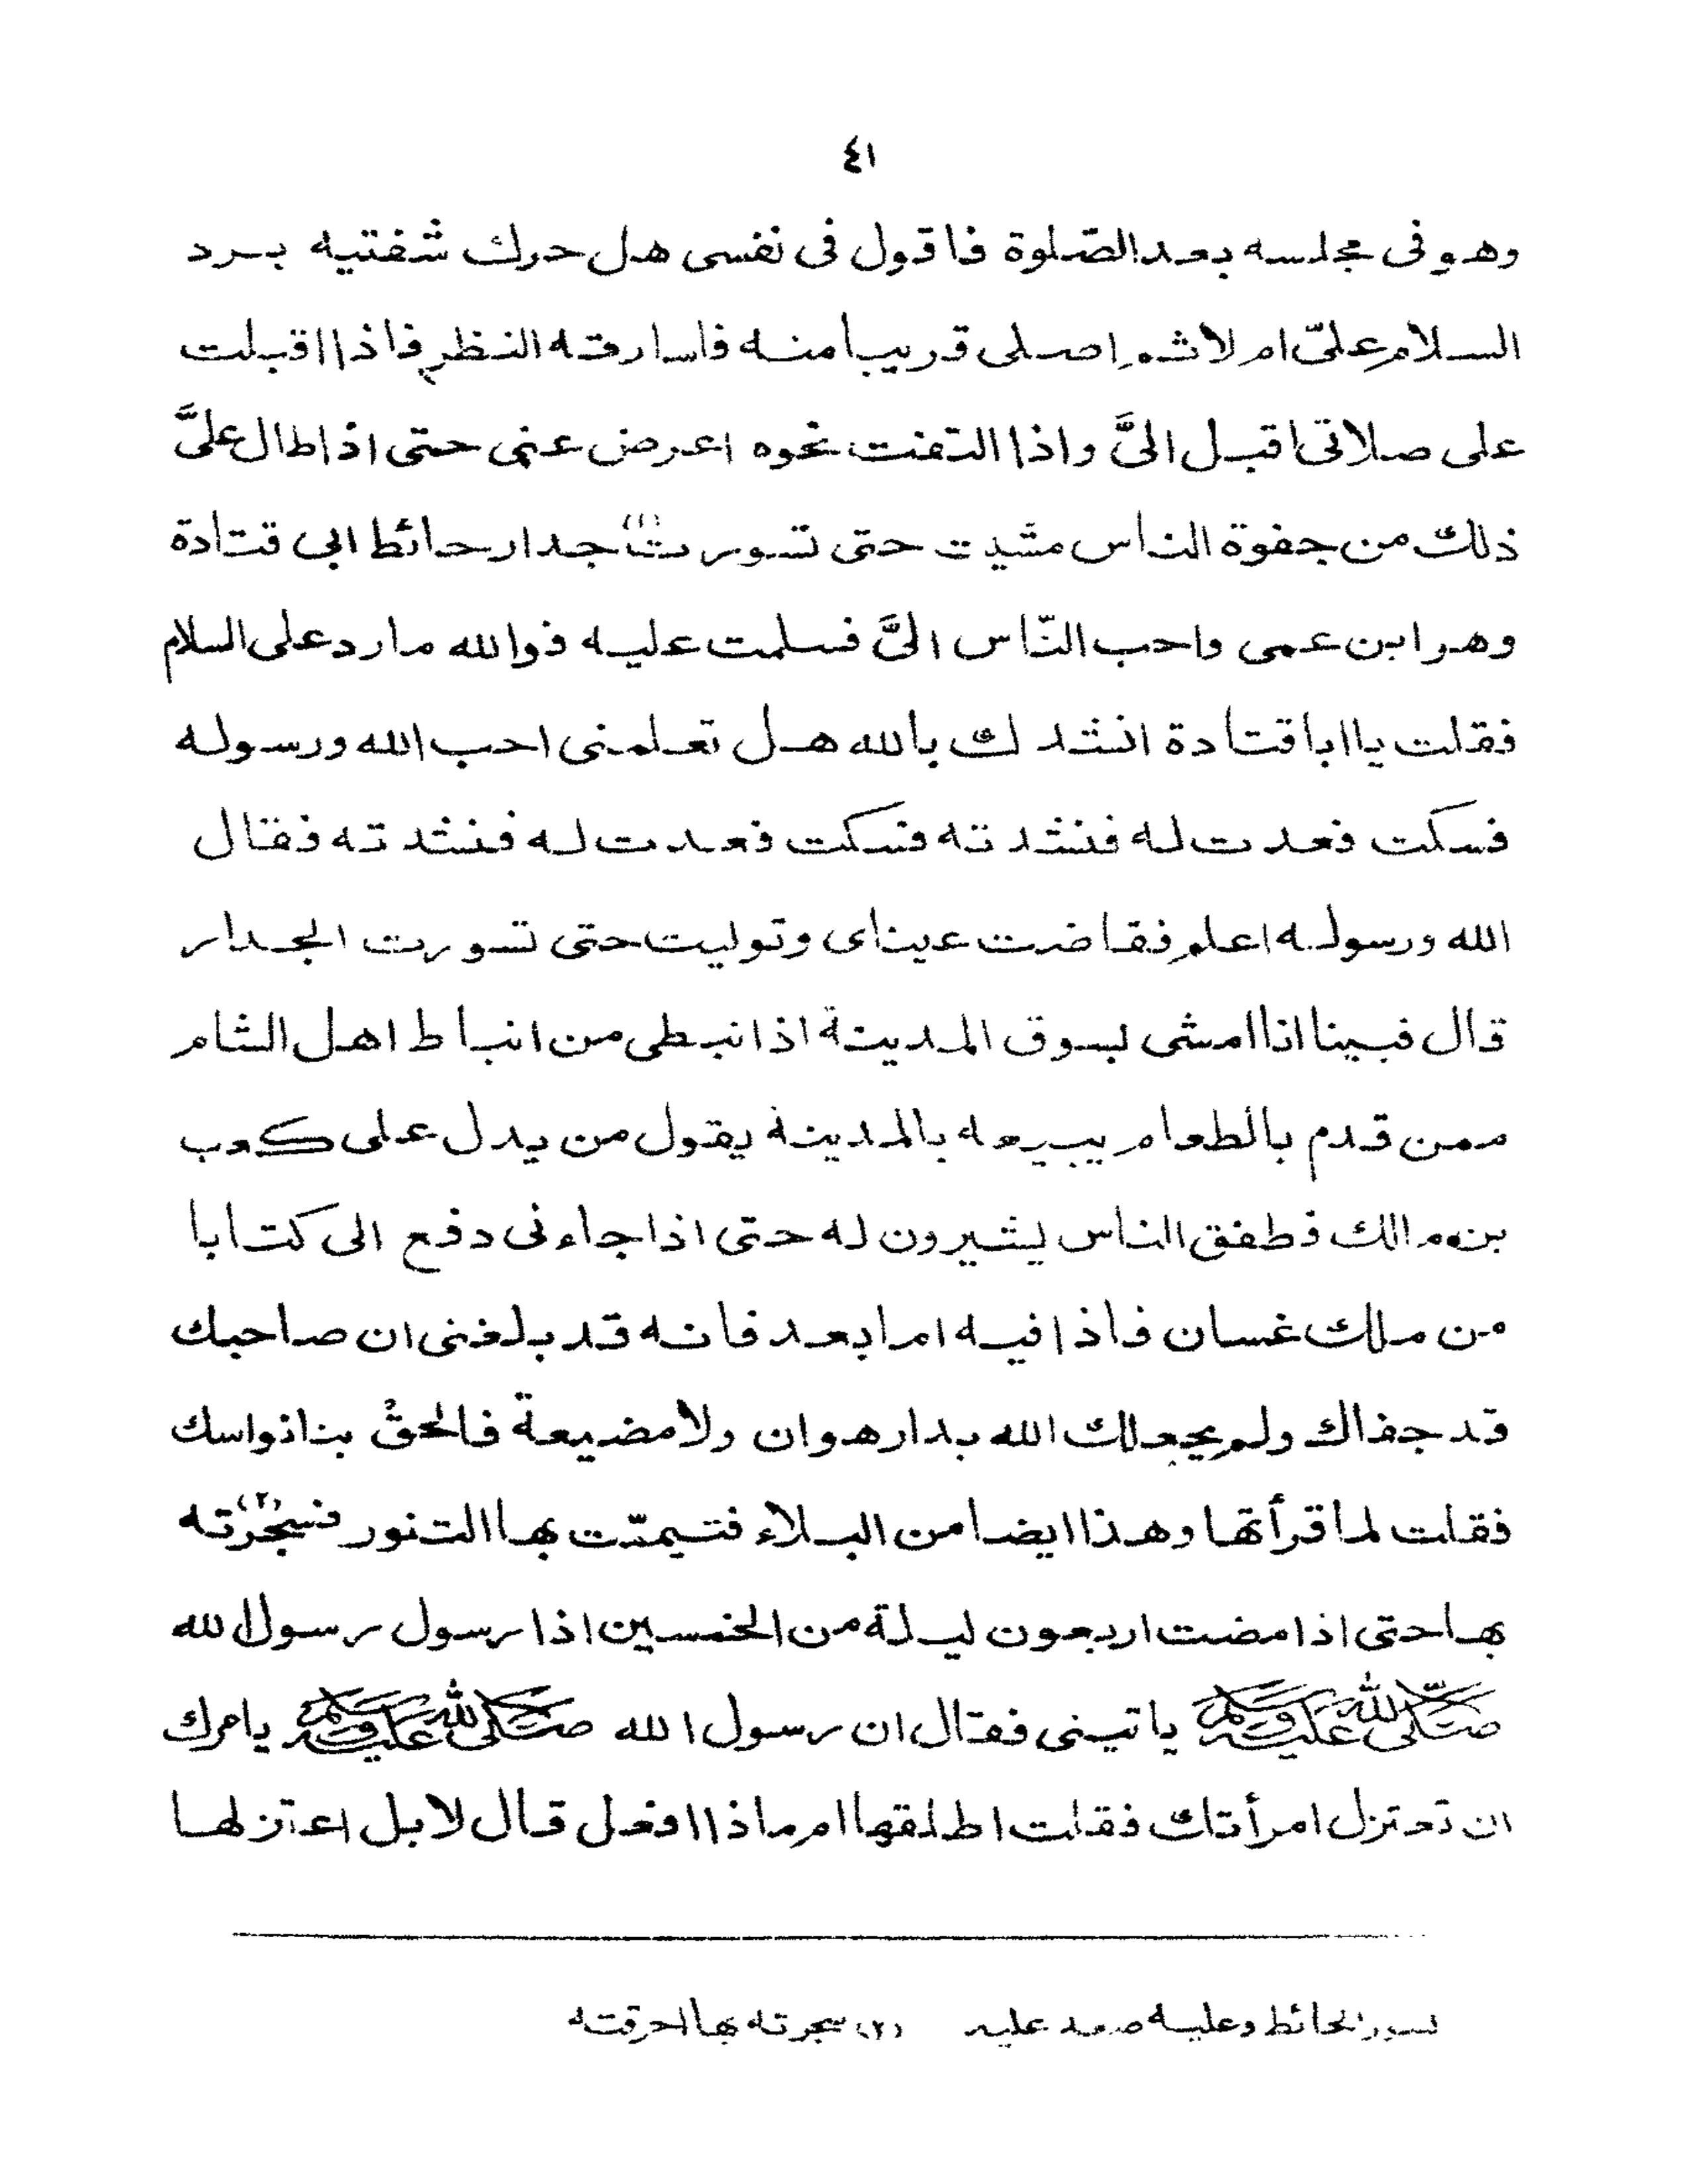 ٤١
وهو فى مجلسه بعد الصّلوة فاقول فى نفسى هل حرك شفتيه برد
السلام علىّ ام لا ثم اصلى قريبا منه فاسارقه النظر فاذا اقبلت
على صلاتى اقبل الىَّ واذا التفت نحوه اعرض عنى حتى اذا طال علىَّ
ذلك من جفوة الناس مشيت حتى تسورت(١) جدار حائط ابى قتادة
وهو ابن عمى واحب النّاس الىَّ فسلمت عليه فوالله ما رد على السلام
فقلت يا ابا قتادة انشدك بالله هل تعلمنى احب الله ورسوله
فسكت فعدت له فنشدته فسكت فعدت له فنشدته فقال
الله ورسوله اعلم ففاضت عيناى وتوليت حتى تسورت الجدار
قال فبينا انا امشى بسوق المدينة اذا نبطى من انباط اهل الشام
ممن قدم بالطعام يبيعه بالمدينة يقول من يدل على كعب
بن مالك فطفق الناس يشيرون له حتى اذا جاءنى دفع الى كتابا
من ملك غسان فاذا فيه اما بعد فانه قد بلغنى ان صاحبك
قد جفاك ولم يجعلك الله بدار هوان ولا مضيعة فالحقْ بنا نواسك
فقلت لما قرأتها وهذا ايضا من البلاء فتيمّت بها التنور فسجرته(٢)
بها حتى اذا مضت اربعون ليلة من الخمسين اذا رسول رسول الله
صلى الله عليه وسلم ياتينى فقال ان رسول الله صلى الله عليه وسلم يامرك
ان تعتزل امرأتك فقلت اطلقها ام ماذا افعل قال لا بل اعتزلها
تسور الحائط وعليه صعد عليه (٢) سجرته بها احرقته